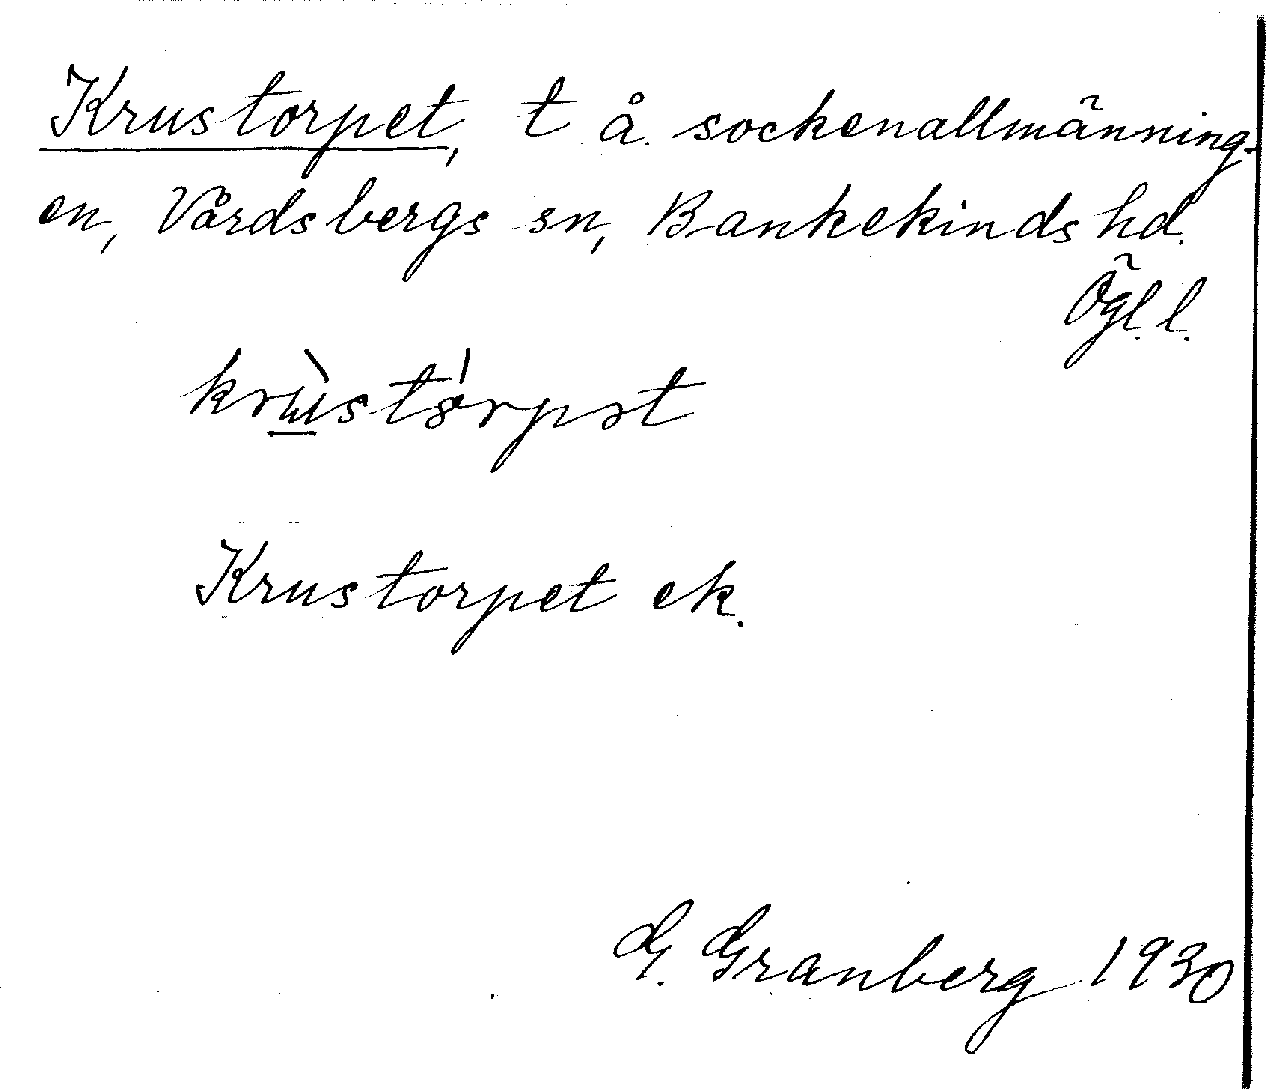 Krustorpet, t å sockenallmänning-
en, Vårdsbergs sn, Bankekinds hd.
Ögl. l.
Krustorpet ek.
G. Granberg 1930